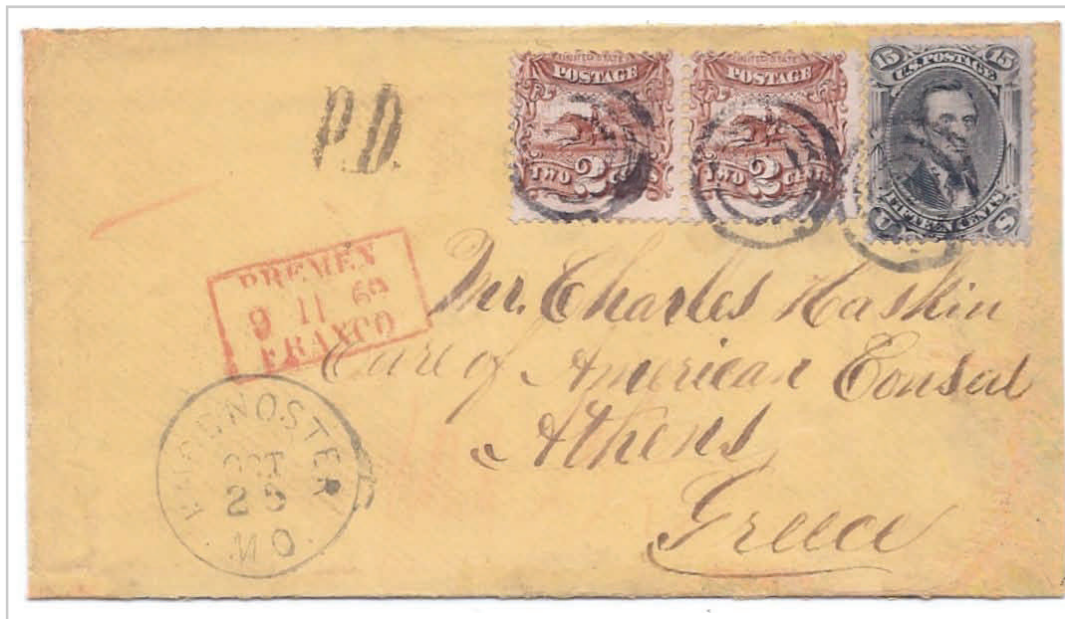 P.D.
UNITED STATES
POSTAGE
TWO 2 CENTS
UNITED STATES
POSTAGE
TWO 2 CENTS
15 15
U.S. POSTAGE
FIFTEEN CENTS
U S
BREMEN
9 11 69
FRANCO
Mr. Charles Haskin
Care of American Consul
Athens
Greece
KNOBNOSTER
OCT
25
MO.